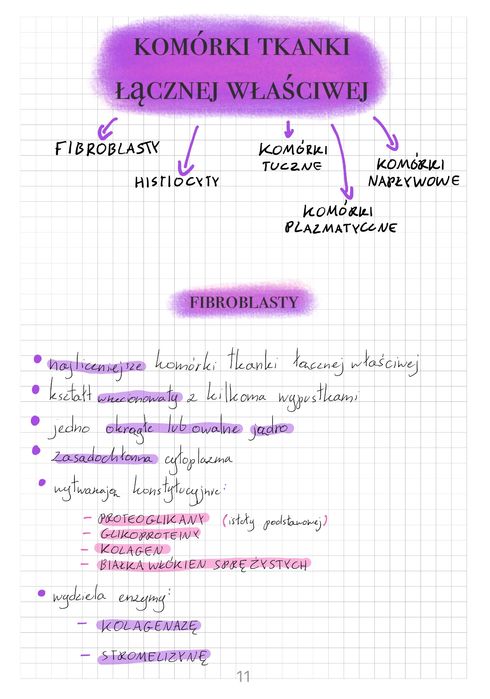 KOMÓRKI TKANKI
ŁĄCZNEJ WŁAŚCIWEJ
FIBROBLASTY
HISTIOCYTY
KOMÓRKI
TUCZNE
KOMÓRKI
PLAZMATYCZNE
KOMÓRKI
NAPŁYWOWE
FIBROBLASTY
• najliczniejsze komórki tkanki łącznej właściwej
• kształt wrzecionowaty z kilkoma wypustkami
• jedno okrągłe lub owalne jądro
• zasadochłonna cytoplazma
• wytwarzają konstytucyjnie:
– PROTEOGLIKANY (istoty podstawowej)
– GLIKOPROTEINY
– KOLAGEN
– BIAŁKA WŁÓKIEN SPRĘŻYSTYCH
• wydziela enzymy:
– KOLAGENAZĘ
– STROMELIZYNĘ
11